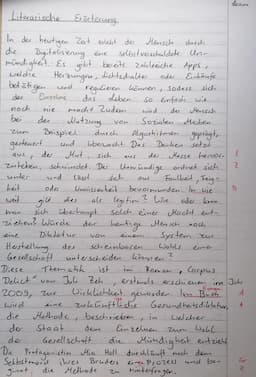 Literarische Erörterung
In der heutigen Zeit macht der Mensch durch
die Digitalisierung eine selbstverschuldete Un-
mündigkeit. Es gibt bereits zahlreiche Apps,
welche Heizungen, Lichtschalter oder Einkäufe
betätigen und regulieren können, sodass sich
der Einzelne das Leben so einfach wie
noch nie macht. Zudem wird der Mensch
bei der Nutzung von Sozialen Medien
zum Beispiel durch Algorithmen geprägt,
gesteuert und überwacht. Das Denken setzt
aus, der Mut, sich aus der Masse hervor-
zuheben, schwindet. Der Unmündige ordnet sich
unter und lässt sich aus Faulheit, Feig-
heit oder Unwissenheit bevormunden. In wie
weit gilt dies als legitim? Wie oder kann
man sich überhaupt solch einer Macht ent-
ziehen? Würde der heutige Mensch noch
eine Diktatur von einem System zur
Herstellung des scheinbaren Wohls einer
Gesellschaft unterscheiden können?
Diese Thematik ist im Roman „Corpus
Delicti" von Juli Zeh, erstmals erschienen im Jahr
2009, zur Wirklichkeit geworden. Im Buch
wird eine zukünftige Gesundheitsdiktatur,
die Methode, beschrieben, in welcher
der Staat dem Einzelnen zum Wohl
der Gesellschaft die Mündigkeit entzieht.
Die Protagonistin Mia Holl durchläuft nach dem
Selbstmord ihres Bruders einen Prozess und be-
ginnt, die Methode zu hinterfragen.